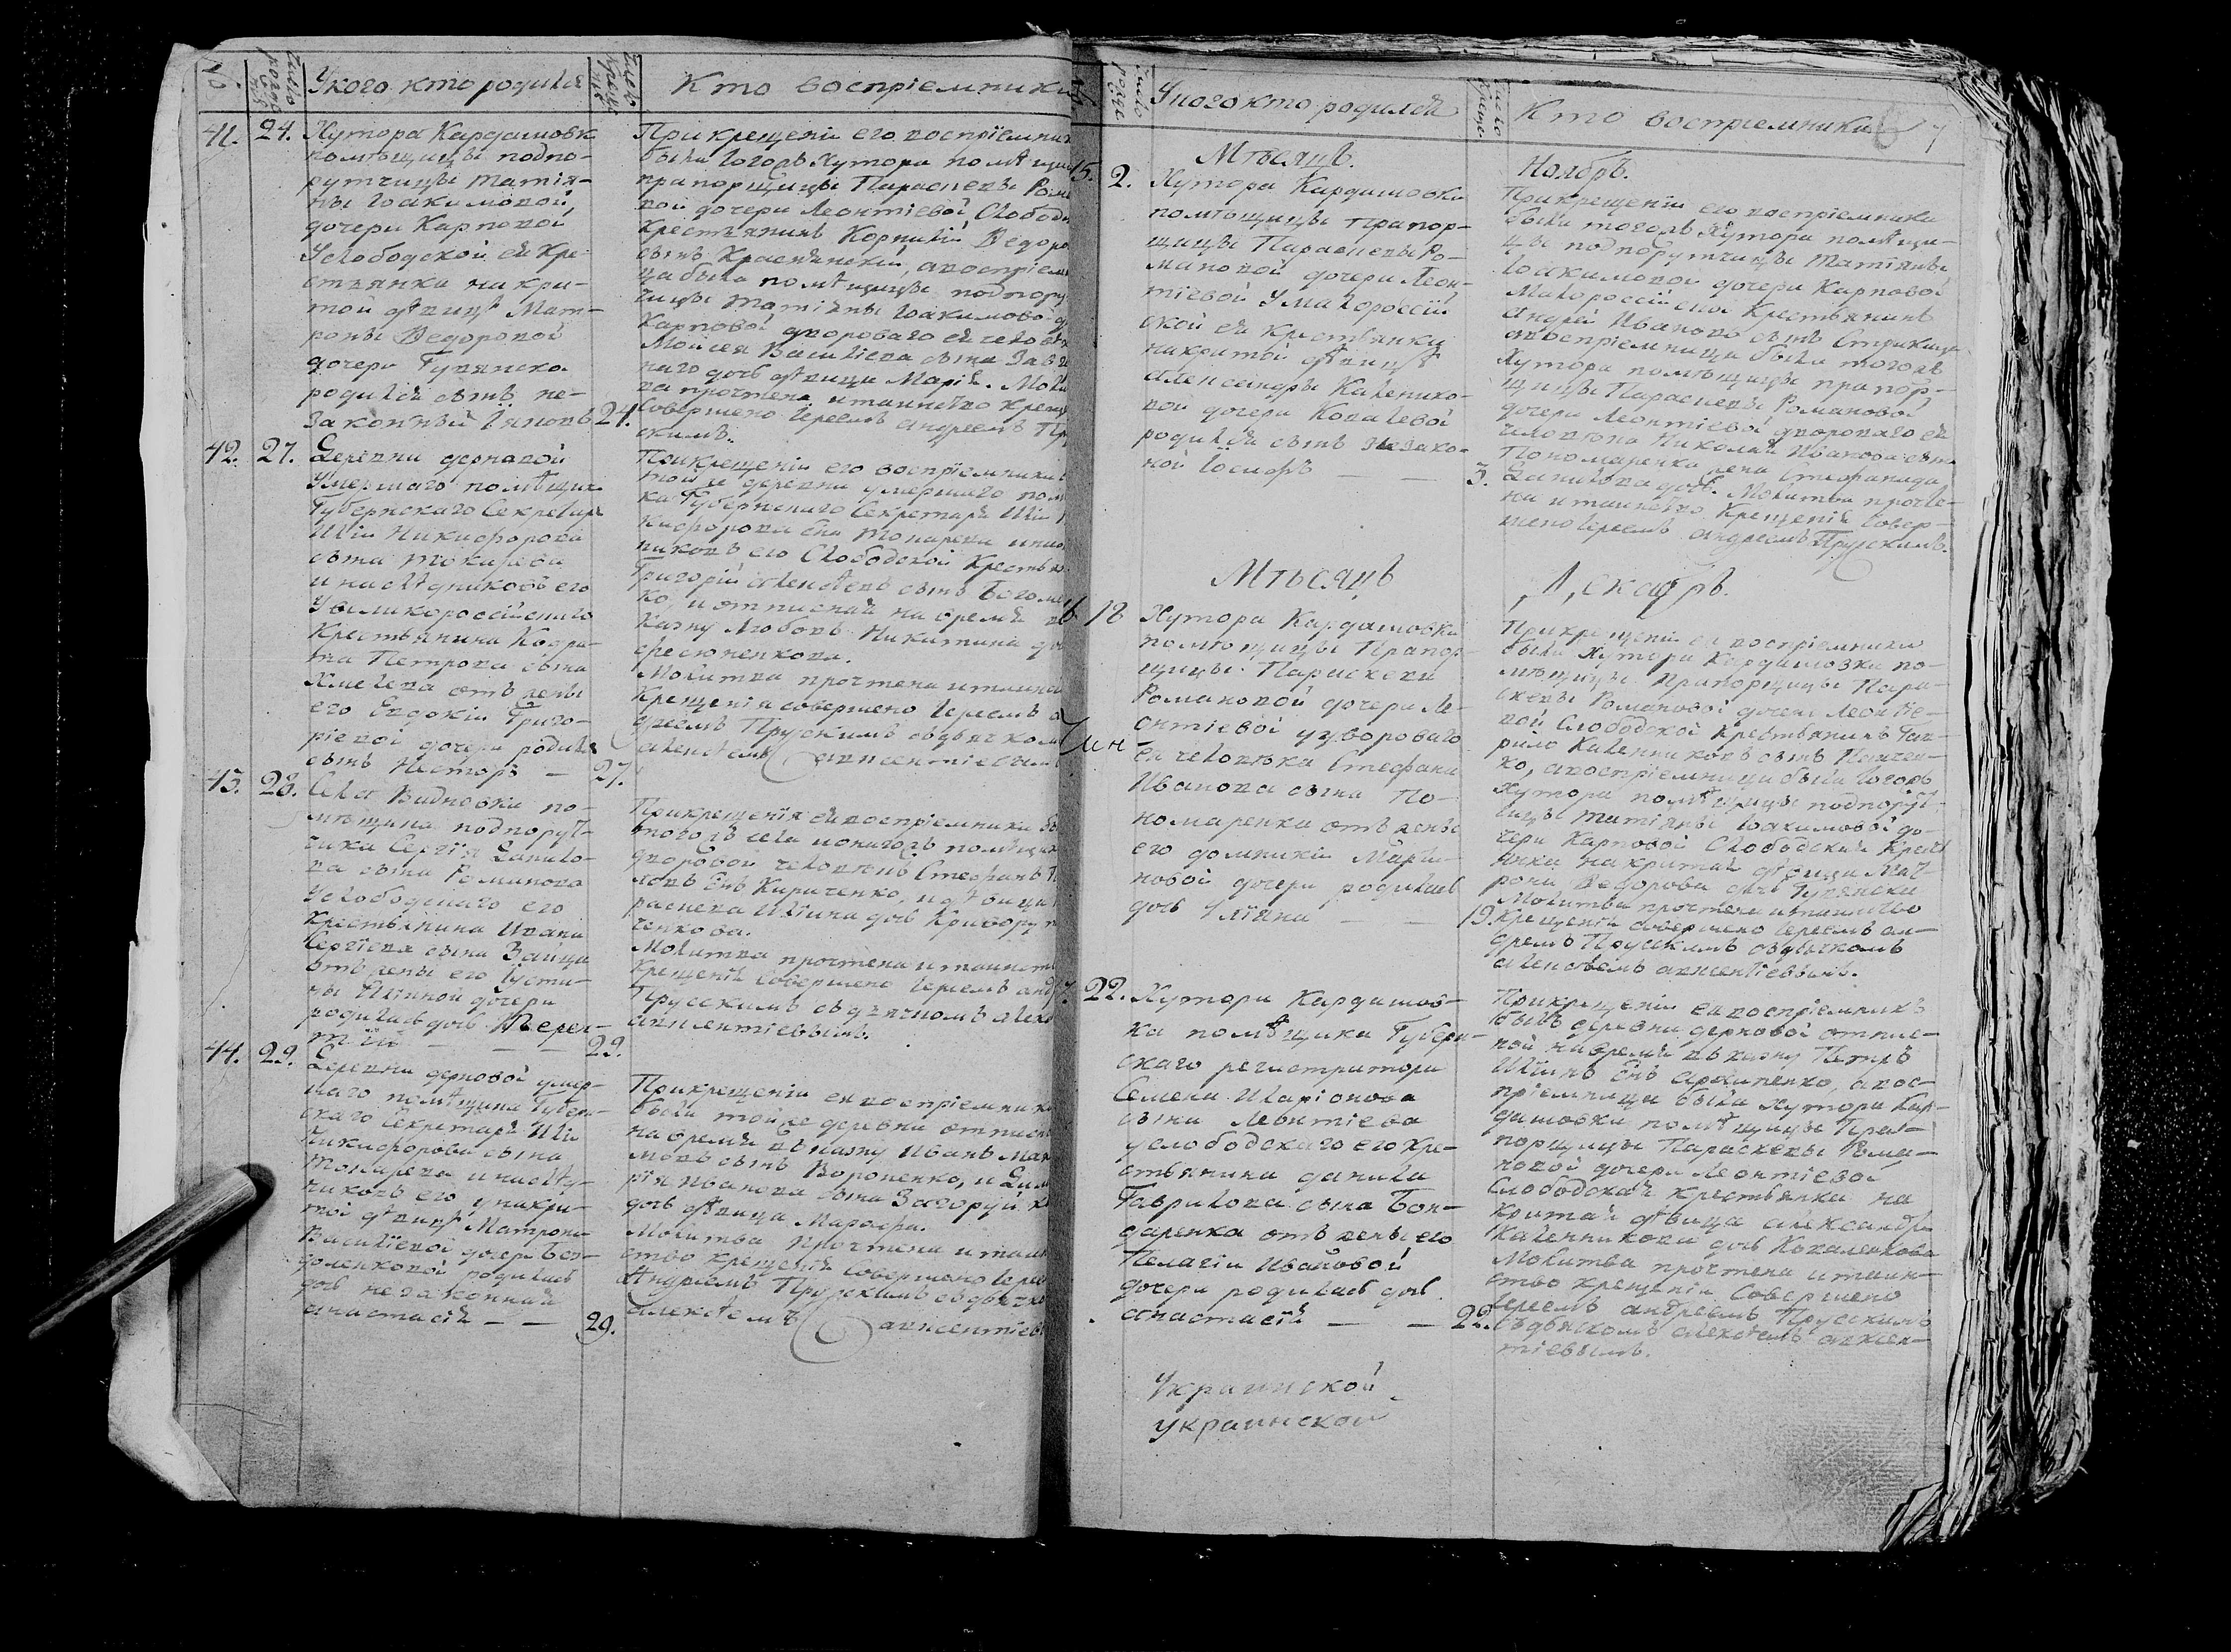 №
Число рожде нія
У кого кто родился
Число креще нія
Кто воспріемники
41. 24. Хутора Кардашовк
помѣщицы подпо-
рутчицы татія-
ны Іоакимовой
дочери Карповой
Услободской ея Кре
стянки накри-
той дѣвицѣ Мат-
роны Ѳедоровой
дочери Гузянско
родился сынъ не-
законный Іяковъ 24.
При крещеніи его воспріемник
были тогожъ Хутора помѣщи
прапорщицы Параскевы Рома
вой дочери Леонтіевой Слободс
крестьянинъ Корнилій Ѳедоро
сынъ Краснянскій, авоспріем
ца была помѣщицы подпору
чицы татіяны Іоакимовой д
Карповой двороваго ея челов
Моисея Василіева сына Заг
наго дочь дѣвица Марія. Моли
ва прочтена итаинство Крещ
Совершено Іереемъ андреемъ Пр
скимъ.
42. 27. Деревни дерновой
Умершаго помѣщик
Губернскаго Секретаря
Иліи Никифорова
сына токарева
инаслѣдниковъ его
Увеликороссійскаго
Крестьянина Кодра-
та Петрова сына
Хмелева отъ жены
его Евдокіи Григо-
ріевой дочери родился
сынъ Несторъ — 27.
При крещеніи его воспріемники
той же деревни умершаго пом
ка Губернскаго Секретаря Иліи
кифорова Сна Токарева инас
никовъ его Слободской Крестьян
Григорій алексѣевъ сынъ Богом
ко, и отписная на время въ
казну Любовь Никитина до
фесюненкова.
Молитва прочтена итаинс
Крещенія совершено Іереемъ а
дреемъ Прускимъ съдьячкомъ
алексѣемъ авксентіевым
43. 28. Села Видновки по-
мѣщика подпорут-
чика Сергія Данило-
ва сына Романова
Услободскаго его
Крестьянина Ивана
Сергіева сына Зайца
отъ жены его Іусти-
ны Иліиной дочери
родилась дочь Терен-
тия — — 29.
При крещенія ея воспріемники бы
тогожъ села ионагожъ помѣщик
дворовой человѣкъ Стефанъ П
ловъ Снъ Кириченко, и дѣвица
раскева Иліина дочь Криворуч
ченкова.
Молитва прочтена итаинств
Крещенія Совершено Іереемъ анд
Прусскимъ съдьячкомъ алекс
авксентіевымъ.
44. 29. Деревни дерновой умер-
шаго помѣщика Губерн-
скаго Секретаря Иліи
Никифорова сына
токарева инаслѣд-
никовъ его унакри-
той дѣвицѣ Матроны
Василіевой дочери Бог-
доленковой родилась
дочь незаконная
анастасія — — 29.
При крещеніи ея воспріемники
были тойже деревни отписн
на время въ казну Иванъ Мак
мовъ сынъ Вороненко, и Дим
рія Иванова сына Загоруйк
дочь дѣвица Марфа.
Молитва прочтена и таин
ство крещенія совершено Іерее
Андреемъ Прускимъ съдьячко
алексѣемъ авксентіев
Число рожде
У кого кто родился
Число креще.
Кто воспріемники
7
Мѣсяцъ.
Ноябрь.
45. 2. Хутора Кардашовки
помѣщицы прапор-
щицы Параскевы Ро-
мановой дочери Леон-
тіевой Умалороссій
ской ея крестьянки
накритой дѣвицѣ
александры Калинико-
вой дочери Ковалевой
родился сынъ незако-
ной Іосифъ — — 3.
При крещеніи его воспріемники
были тогожъ хутора помѣщи-
цы подпорутчицы татіяны
Іоакимовой дочери Карповой
малороссійской Крестьянинъ
андрей Ивановъ сынъ Стрижац
авоспріемница была тогожъ
хутора помѣщицы прапор-
щицы Параскевы Романовой
дочери Леонтіевой двороваго ея
человѣка Николая Иванова сына
Пономаренка жена Стефанида
Данилова дочь. Молитва прочте-
на и таинство Крещенія Совер-
шено Іереемъ андреемъ Прускимъ.
Мѣсяцъ
Декабрь.
18 Хутора Кардашовки
помѣщицы Прапор-
щицы Параскеви
Романовой дочери Ле-
онтіевой удвороваго
ея человѣка Стефана
Иванова сына По-
номаренка отъ жены
его домникіи Марти-
новой дочери родилась
дочь Уліяна — — 19.
При крещеніи ея воспріемники
были Хутора Кардашовки по-
мѣщицы прапорщицы Пара-
скевы Романовой дочери Леонтіе-
вой Слободской Крестьянинъ Гав-
рило Калинниковъ сынъ
ко, авоспріемница была тогожъ
хутора помѣщицы подпорут-
чицы татіяны Іоакимовой до-
чери Карповой Слободская Крест
янка накритая дѣвица Мат-
рона Ѳедорова дочь Гузянска
Молитва прочтена итаинство
крещенія совершено Іереемъ ан-
дреемъ Прусскимъ съдьячкомъ
алексѣемъ авксентіевымъ.
22. Хутора Кардашов-
ка помѣщика Губерн-
скаго регистратора
Семена Иларіонова
сына Левитіева
услободскаго его кре-
стьянина данила
Гаврилова сына Бон-
даренка отъ жены его
Пелагіи Ивановой
дочери родилась дочь
анастасія — — 22.
При крещеніи ея воспріемникъ
былъ деревни дерновой отпис-
ной на время въ казну Петръ
Иліинъ Снъ Архипенко, авос-
пріемница была хутора Кар-
дашовки помѣщицы Прап-
порщицы Параскевы Рома-
новой дочери Леонтіевой
Слободская крестьянка на
критая дѣвица александра
Калинникова дочь Коваленкова
Молитва прочтена итаин-
ство крещенія Совершено
Іереемъ андреемъ Прусскимъ
съдьячкомъ алексѣемъ авксен-
тіевымъ.
Украинской
украинской